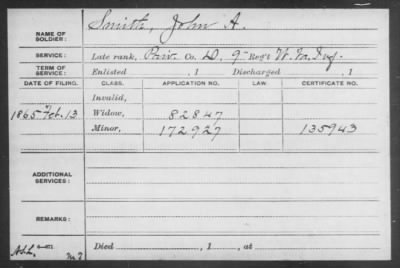 NAME OF SOLDIER: Smith, John A.
SERVICE: Late rank, Priv. Co. D, 9 Reg't W. Va. Inf.
TERM OF SERVICE: Enlisted , 1 Discharged , 1
DATE OF FILING. CLASS. APPLICATION NO. LAW. CERTIFICATE NO.
Invalid,
1865 Feb. 13 Widow, 82847
Minor, 172927 135943
ADDITIONAL SERVICES:
REMARKS:
Died , 1 , at